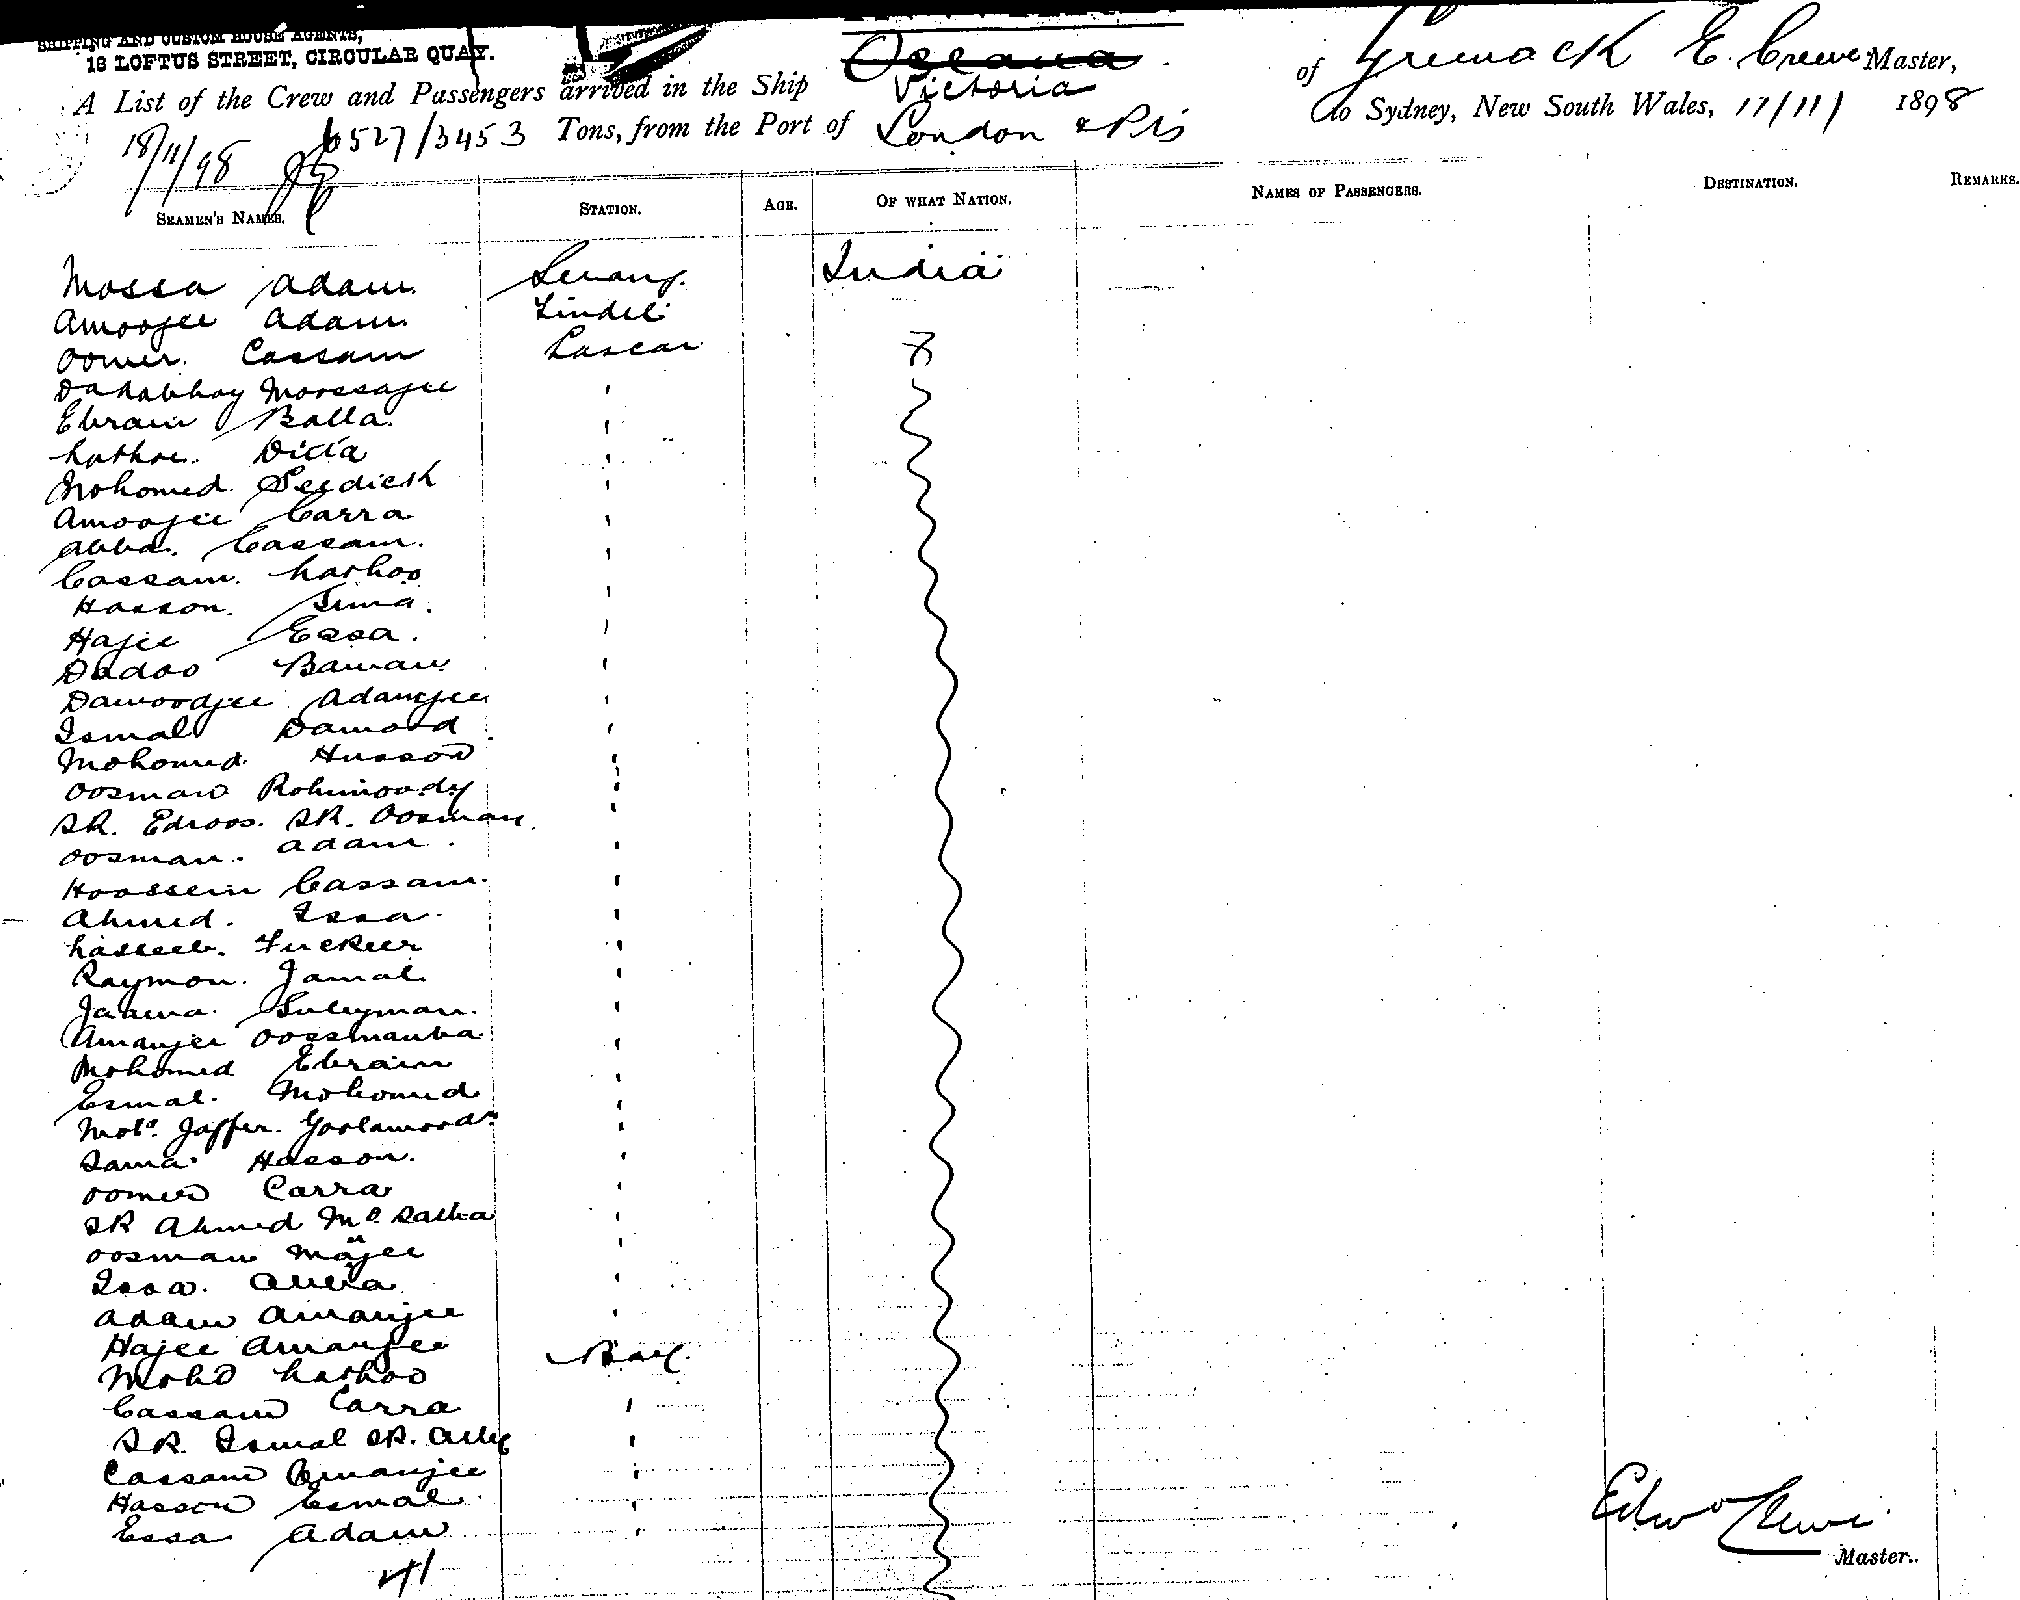 SHIPPING AND CUSTOM HOUSE AGENTS,
18 LOFTUS STREET, CIRCULAR QUAY.
A List of the Crew and Passengers arrived in the Ship Oceana Victoria of Greenock E. Crewe Master,
18/11/98 6527/3453 Tons, from the Port of London & Pts to Sydney, New South Wales, 17/11/ 1898
SEAMEN'S NAMES. STATION. AGE. OF WHAT NATION. NAMES OF PASSENGERS. DESTINATION. REMARKS.
Mossa Adam Serang India
Amoojee Adam Tindel
Oomer Cassam Lascar
Dadabhoy Moossajee
Ebraim Balla
Ditta
Mohomed Seedick
Amoojee Carra
Abba Cassam
Cassam Nathoo
Hasson
Hajee Essa
Dadoo Bawan
Dawoodjee Adamjee
Ismal Dawood
Mohomed Husson
Oosman Rohimoody
SK. Edroos SK. Oosman
Oosman Adam
Hoossein Cassam
Ahmed Issa
Fuckeer
Raymon Jamal
Suleyman
Amanjee
Mohomed Ebraim
Esmal Mohomed
Jaffer
Hasson
Oomer Carra
SK Ahmed
Oosman
Issa
Adam Amanjee
Hajee Amanjee
Mohd Nathoo
Cassam Carra
SK. Ismal SK. Ally
Cassam Amanjee
Hasson Esmal
Essa Adam
41
Edwd Crewe
Master.